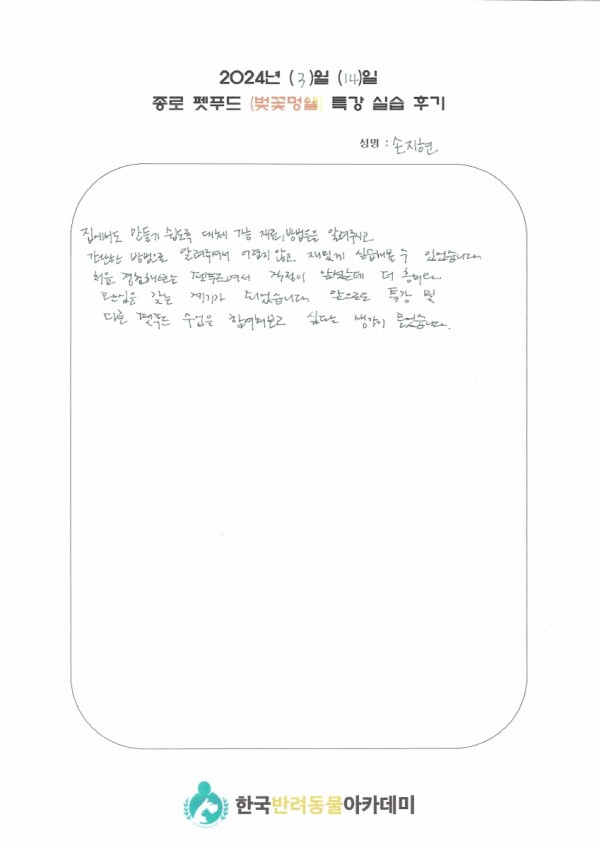 2024년 (3)월 (14)일
종로 펫푸드 (벚꽃명월) 특강 실습 후기
성명 : 손지현
집에서도 만들기 쉽도록 대체 가능 재료, 방법들을 알려주시고
간단한 방법으로 알려주셔서 어렵지 않고 재밌게 실습해볼 수 있었습니다.
처음 경험해보는 펫푸드여서 걱정이 많았는데 더 흥미와
관심을 갖는 계기가 되었습니다. 앞으로도 특강 및
다른 펫푸드 수업은 참여해보고 싶다는 생각이 들었습니다.
한국반려동물아카데미